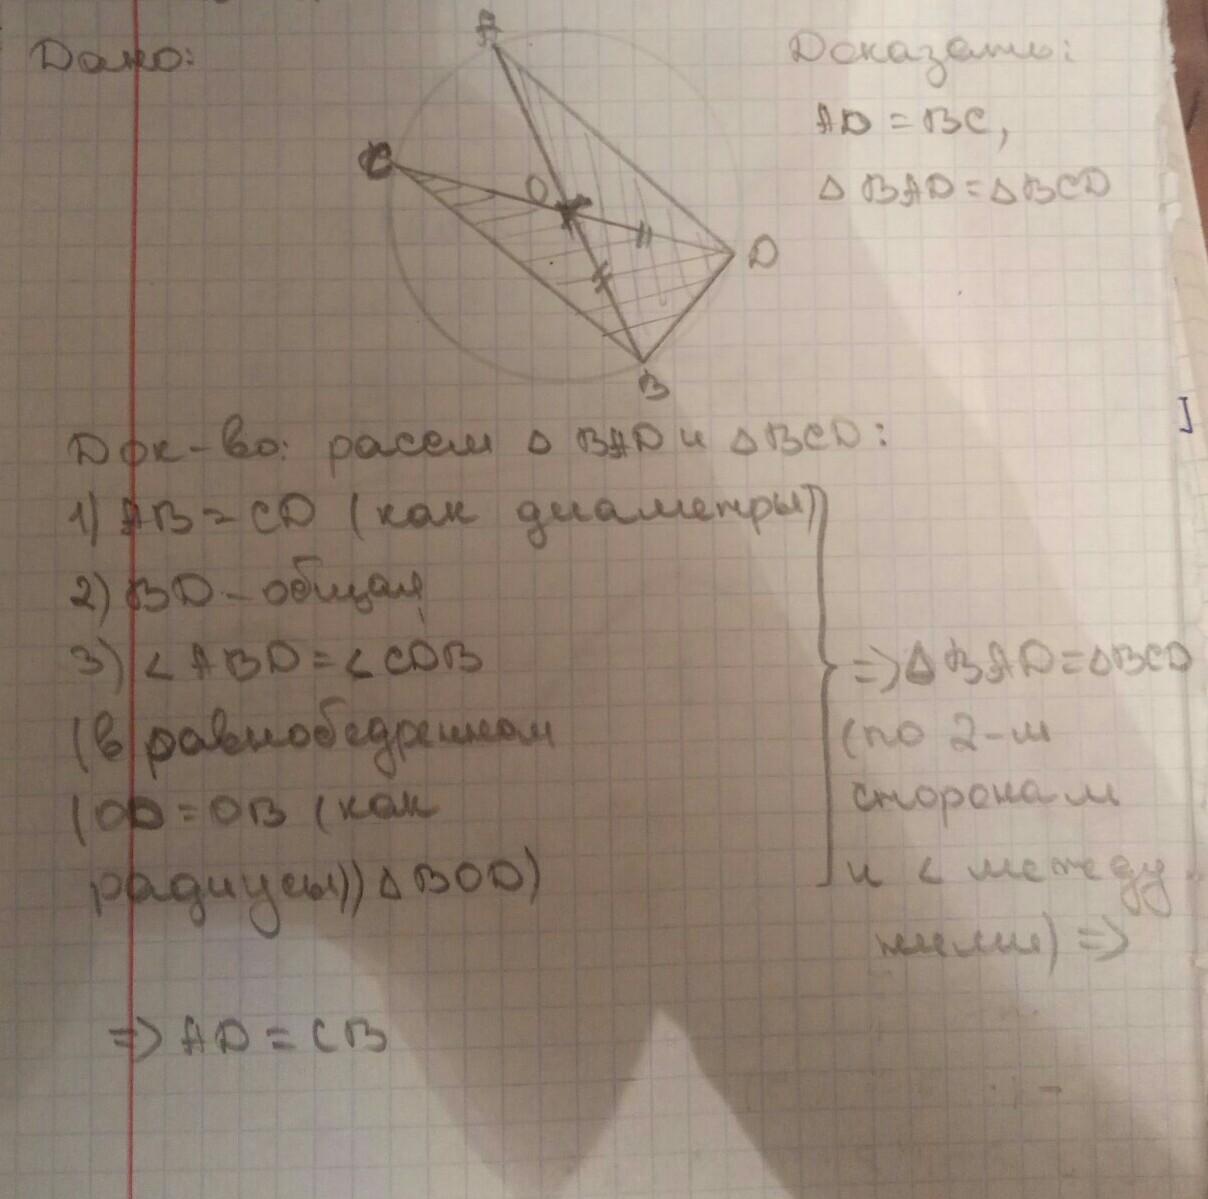 Дано:
Доказать:
AD = BC,
Δ BAD = Δ BCD
A
C
O
D
B
Док-во: рассм Δ BAD и Δ BCD:
1) AB = CD (как диаметры)
2) BD - общая
3) < ABD = < CDB
(в равнобедренном
(OD = OB (как
радиусы)) Δ BOD)
=> Δ BAD = Δ BCD
(по 2-м
сторонам
и < между
ними) =>
=> AD = CB